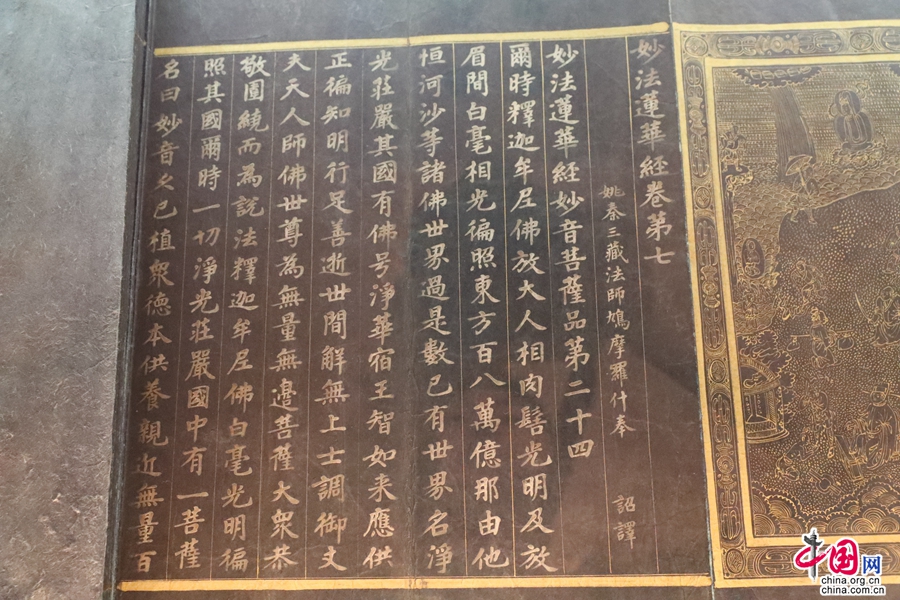 妙法蓮華經卷第七
姚秦三藏法師鳩摩羅什奉 詔譯
妙法蓮華經妙音菩薩品第二十四
爾時釋迦牟尼佛放大人相肉髻光明及放
眉間白毫相光徧照東方百八萬億那由他
恒河沙等諸佛世界過是數已有世界名淨
光莊嚴其國有佛号淨華宿王智如来應供
正徧知明行足善逝世間解無上士調御丈
夫天人師佛世尊為無量無邊菩薩大衆恭
敬圍繞而為說法釋迦牟尼佛白毫光明徧
照其國爾時一切淨光莊嚴國中有一菩薩
名曰妙音久已植衆德本供養親近無量百
中国网
china.org.cn
china.com.cn